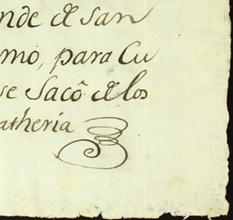 nde de san
mo, para Cu
se Sacô de los
atheria